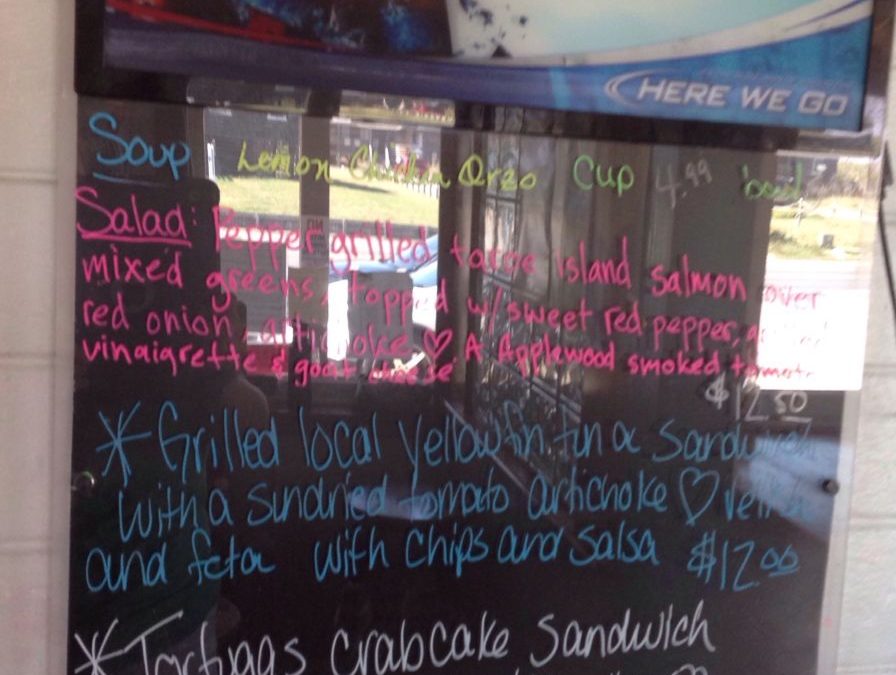 HERE WE GO
Soup Lemon Chicken Orzo Cup 4.99 bowl
Salad: Pepper grilled faroe island salmon over
mixed greens, topped w/ sweet red pepper,
red onion, artichoke ♡ A Applewood smoked tomato
vinaigrette & goat cheese
$12.50
* Grilled local yellowfin tuna sandwich
with a sundried tomato artichoke ♡ relish
and feta with chips and salsa $12.00
* Tortugas crabcake sandwich